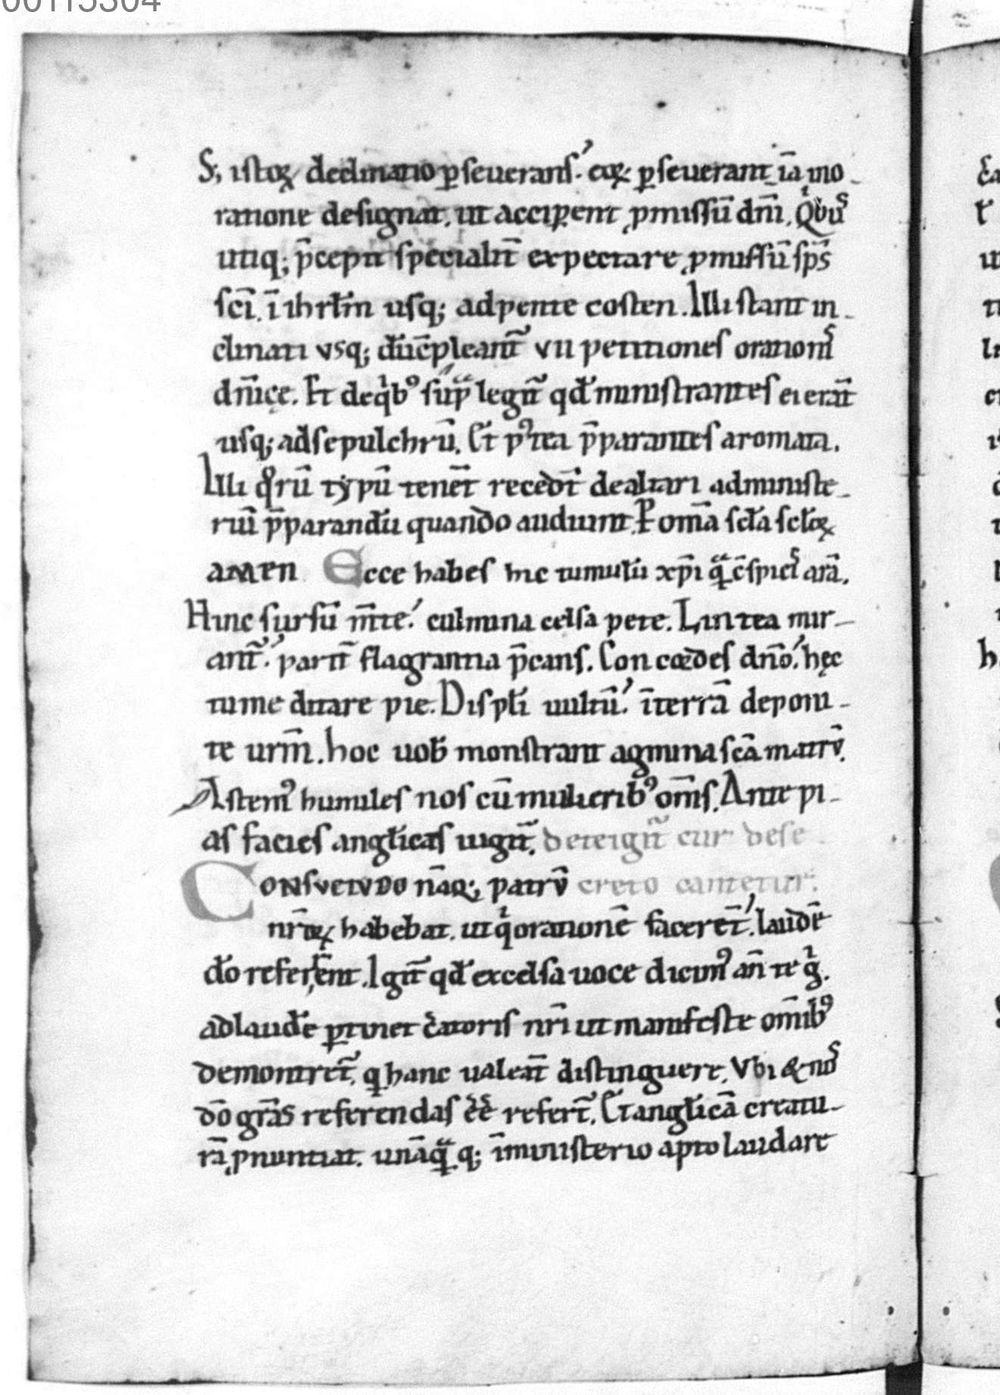 00115304
S; istoꝝ declinatio ꝑseuerans. eoꝝ ꝑseuerant iā ino
ratione designat. ut accipent ꝓmissū dn̄i. Qͥbuˢ
utiq; p̄cepit sp̄ecialit̄ expectare ꝓmissū sp̄s
sc̄i. ī ihrl̄m usq; ad pente costen. Illi stant in
clinati vsq; dū c̄pleant̄ vii petitiones orationis
dn̄ice. Et de qͥbꝰ sup͛ legit̄ qđ ministrantes ei erāt
usq; ad sepulchrū. Et pꝰtea p̄parantes aromata.
Illi qͦrū typū tenēt recedt̄ de altari administe
riū p̄parandū quando audiunt. P om̄a sc̄la sc̄loꝝ
AMEN Ecce habes hic tumulū xp̄i qᵃ c̄spicis arā.
Hinc sursū m̄te. culmina celsa pete. Lintea mir
ant̄. parit̄ flagrantia p̄cans. Concedes dn̄o. hęc
tu me ditare pie. Displi uultū. ī terrā deponi
te urm̄. hoc uob̄ monstrant agmina scā matrū.
Astemꝰ humiles nos cū mulieribꝰ om̄s. Ante pi
as facies angl̄icas iugit̄. de teigit̄ cur de se
CONSVETVDO nāq; patrū creto cantetur.
nr̄oꝝ habebat. ut qͥ orationē faceret̄. laudē
dō referrent. Igit̄ qđ excelsa uoce dicimꝰ an̄ te gͥ.
ad laudē ꝑtinet c̄atoris nr̄i ut manifeste om̄ibꝰ
demontret̄. q hanc ualeāt distinguere. Vbi & noˢ
dō grās referendas eē refert̄. Et angl̄icā creatu
rā ꝓnuntiat. unāqᵃq; ī ministerio apto laudare